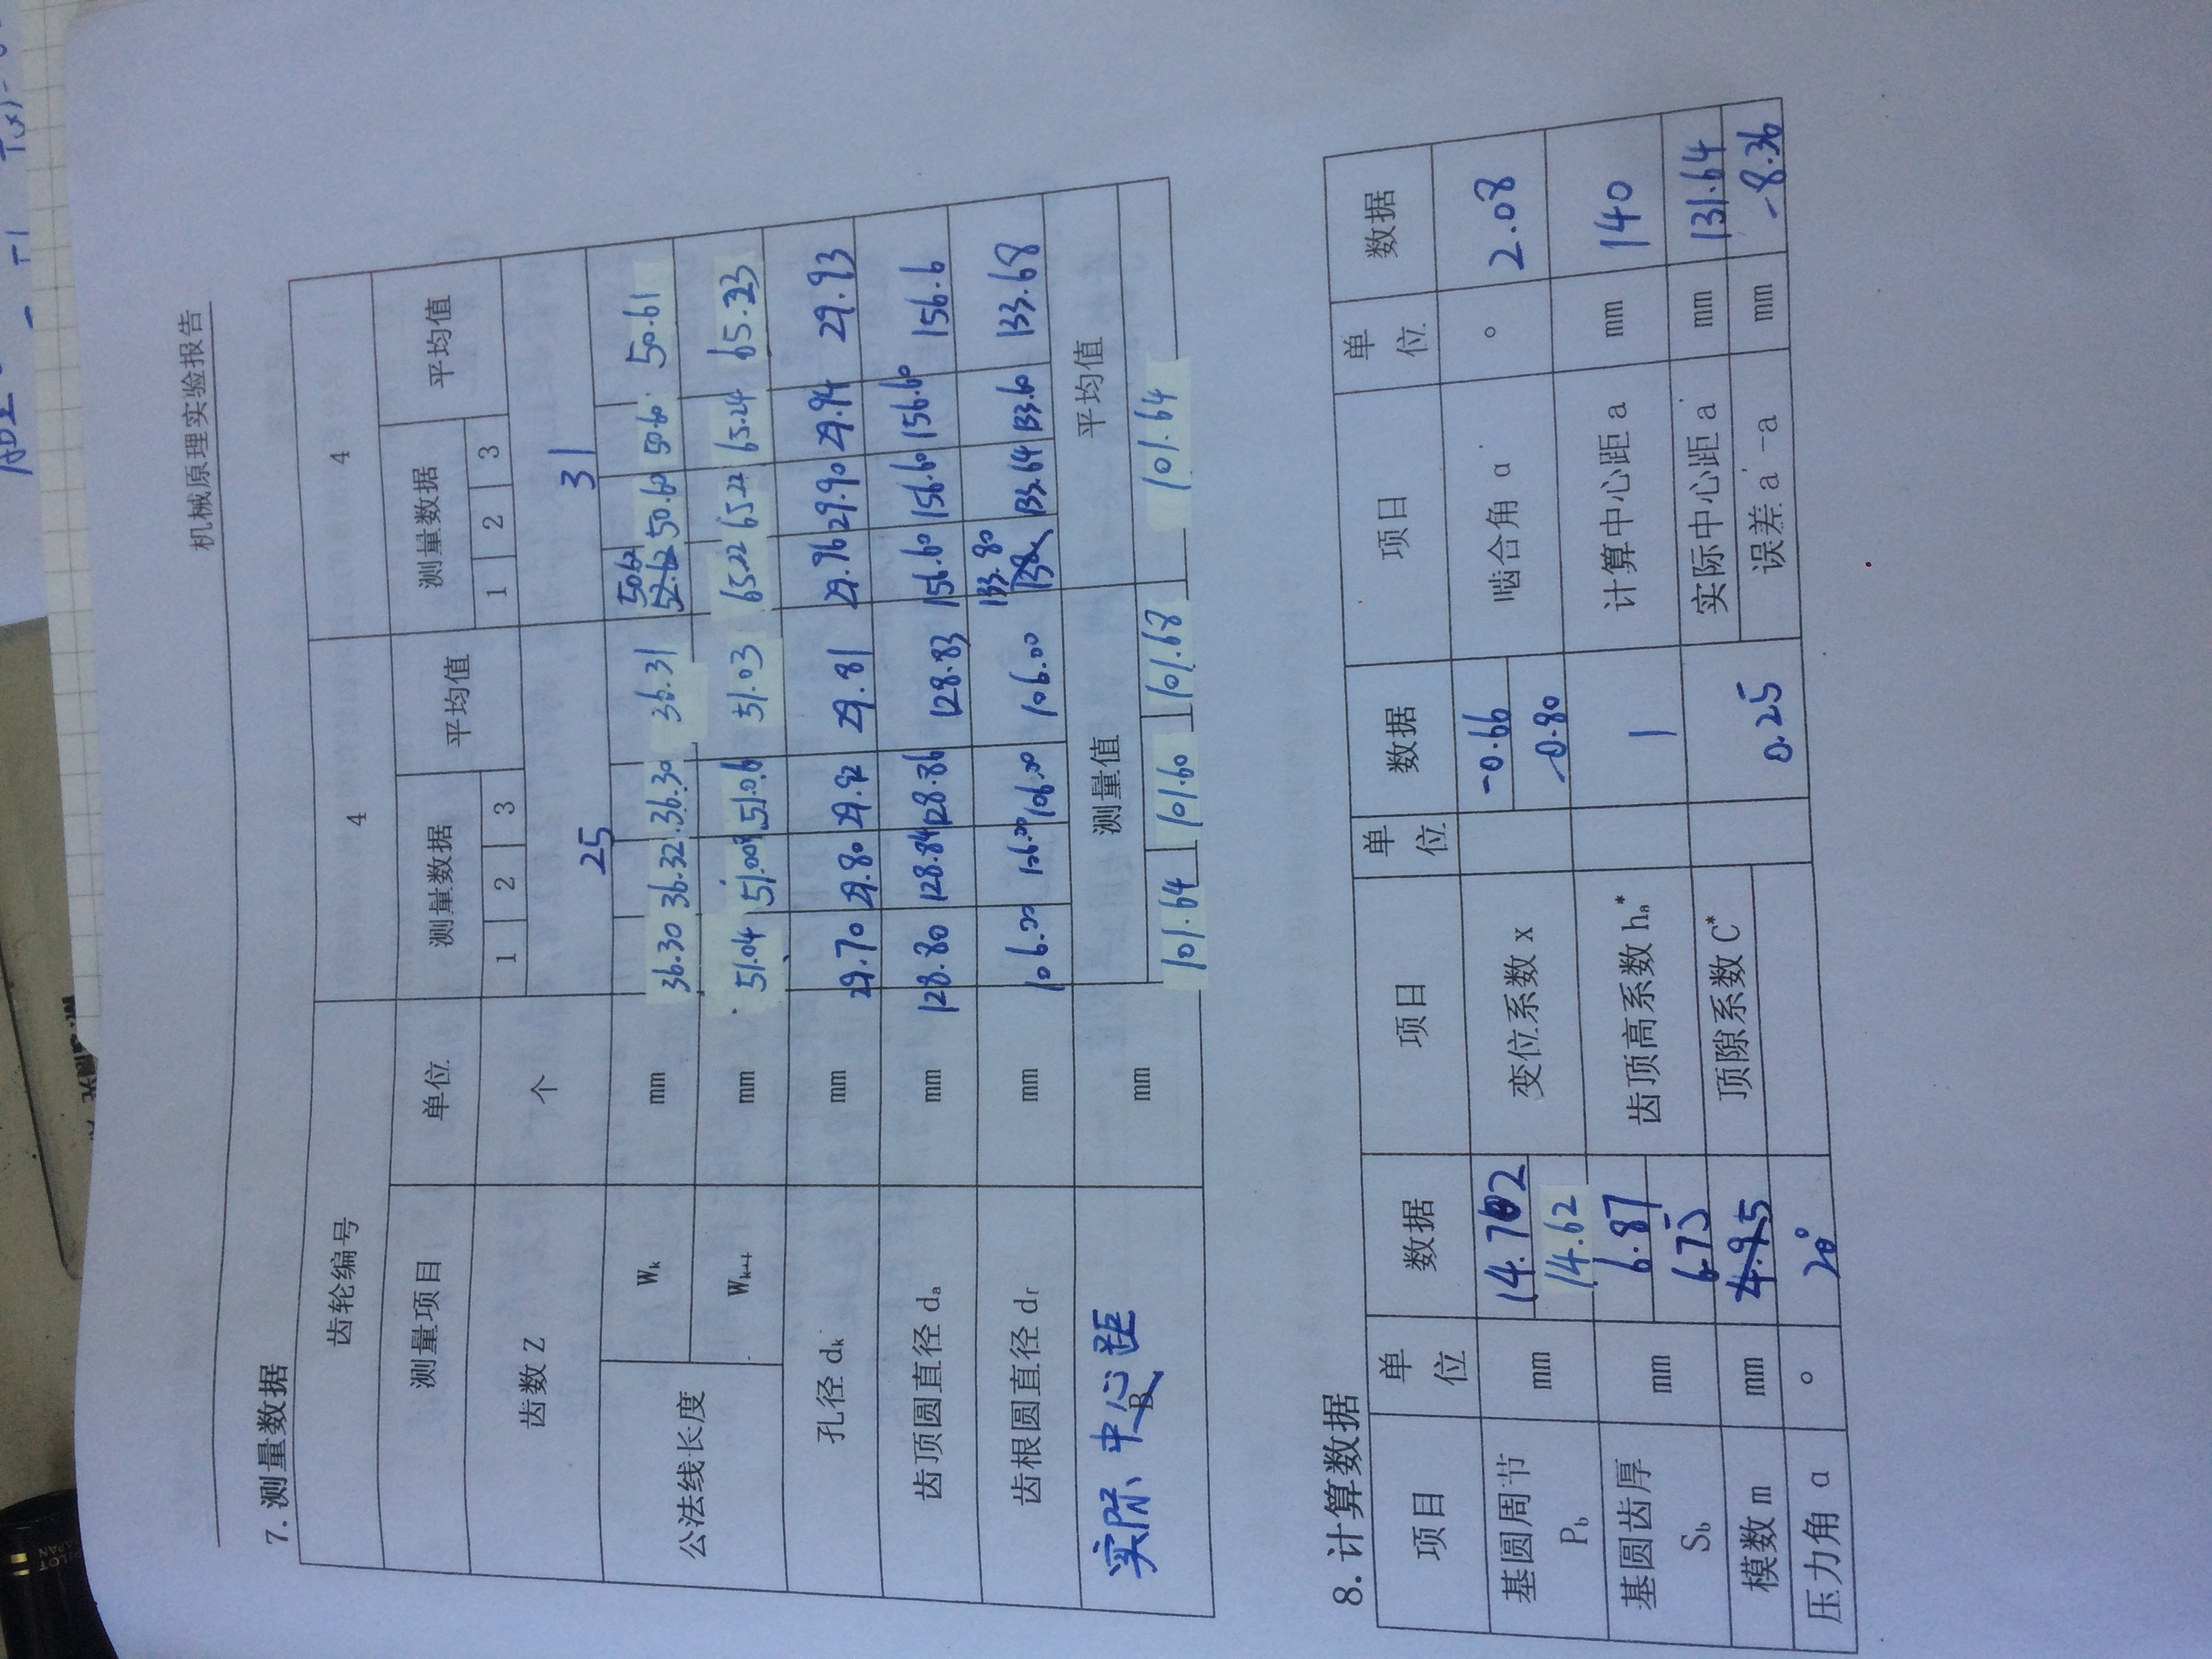 机械原理实验报告
7.测量数据
齿轮编号 4 4
测量项目 单位 测量数据 平均值 测量数据 平均值
1 2 3 1 2 3
齿数 Z 个 25 31
公法线长度
50.62
Wk mm 36.30 36.32 36.30 36.31 52.62 50.60 50.60 50.61
Wk+1 mm 51.04 51.00 51.06 51.03 65.22 65.22 65.24 65.23
孔径 dk mm 29.70 29.80 29.92 29.81 29.96 29.90 29.94 29.93
齿顶圆直径 da mm 128.80 128.84 128.86 128.83 156.60 156.60 156.60 156.6
133.80
齿根圆直径 df mm 106.00 106.00 106.00 106.00 138 133.64 133.60 133.68
实际中心距 B mm 测量值 平均值
101.64 101.60 101.68 101.64
8.计算数据
项目 单位 数据 项日 单位 数据 项日 单位 数据
基圆周节 Pb mm 14.702 14.62 变位系数 x -0.66 -0.80 啮合角 α' ° 2.08
基圆齿厚 Sb mm 6.87 6.75 齿顶高系数 ha* 1 计算中心距 a mm 140
模数 m mm 4.95 顶隙系数 C* 0.25 实际中心距 a' mm 131.64
误差 a'-a mm -8.36
压力角 α ° 20°